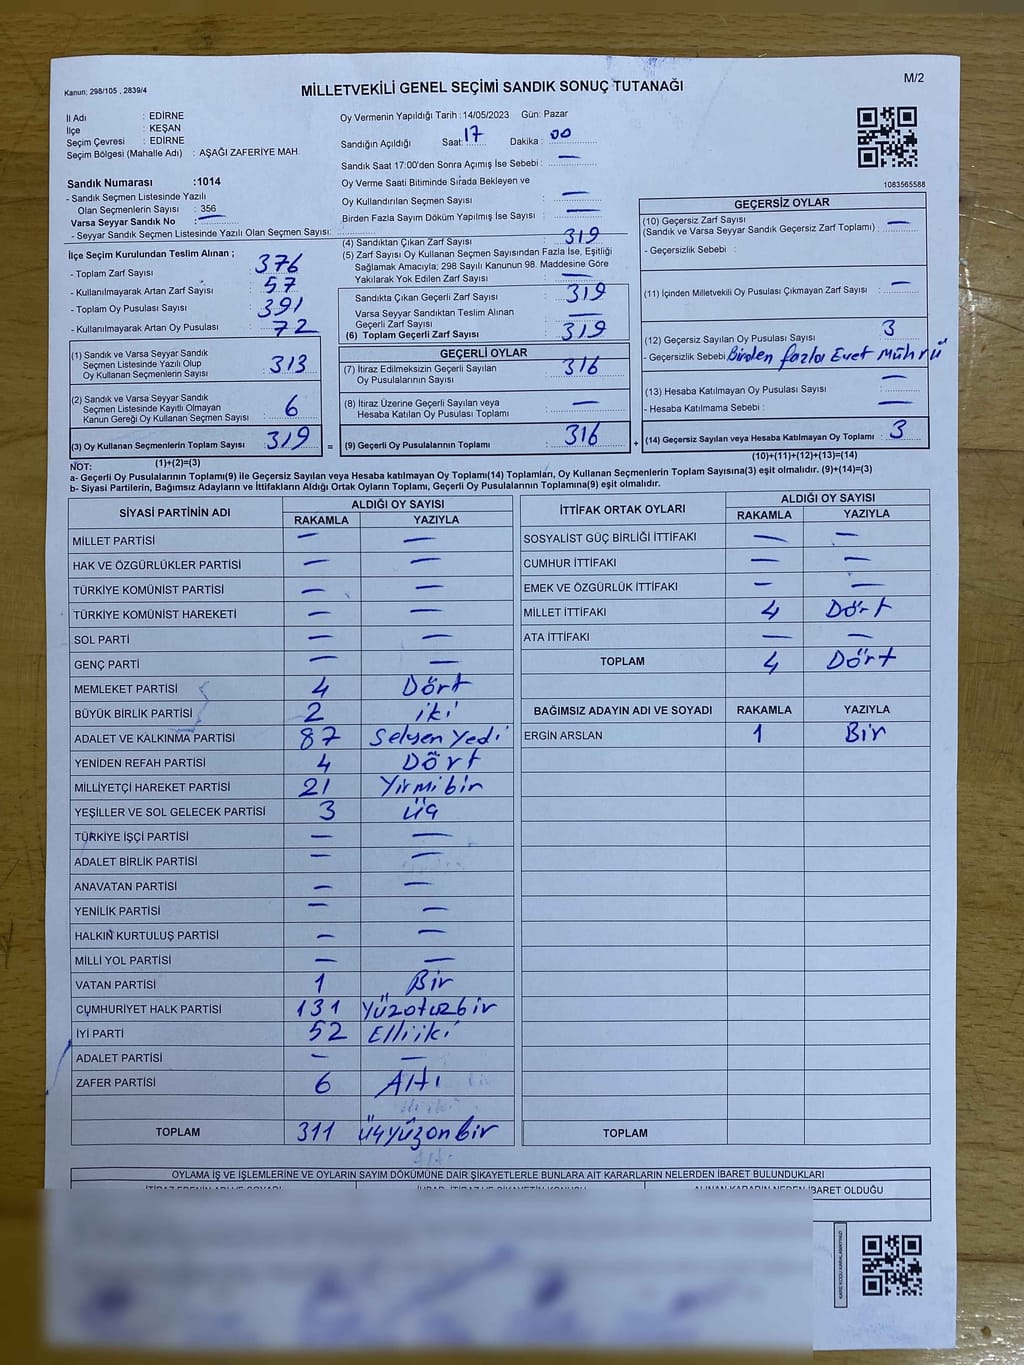 Kanun: 298/105 , 2839/4
MİLLETVEKİLİ GENEL SEÇİMİ SANDIK SONUÇ TUTANAĞI
M/2
İl Adı : EDİRNE
İlçe : KEŞAN
Seçim Çevresi : EDİRNE
Seçim Bölgesi (Mahalle Adı) : AŞAĞI ZAFERİYE MAH.
Oy Vermenin Yapıldığı Tarih :14/05/2023 Gün: Pazar
Sandığın Açıldığı Saat: 17 Dakika : 00
Sandık Saat 17:00'den Sonra Açımış İse Sebebi : —
Oy Verme Saati Bitiminde Sırada Bekleyen ve
Oy Kullandırılan Seçmen Sayısı : —
Birden Fazla Sayım Döküm Yapılmış İse Sayısı : —
1083565588
Sandık Numarası :1014
- Sandık Seçmen Listesinde Yazılı
Olan Seçmenlerin Sayısı : 356
Varsa Seyyar Sandık No : —
- Seyyar Sandık Seçmen Listesinde Yazılı Olan Seçmen Sayısı:
İlçe Seçim Kurulundan Teslim Alınan ;
- Toplam Zarf Sayısı : 376
- Kullanılmayarak Artan Zarf Sayısı : 57
- Toplam Oy Pusulası Sayısı : 391
- Kullanılmayarak Artan Oy Pusulası : 72
(1) Sandık ve Varsa Seyyar Sandık
Seçmen Listesinde Yazılı Olup
Oy Kullanan Seçmenlerin Sayısı : 313
(2) Sandık ve Varsa Seyyar Sandık
Seçmen Listesinde Kayıtlı Olmayan
Kanun Gereği Oy Kullanan Seçmen Sayısı : 6
(3) Oy Kullanan Seçmenlerin Toplam Sayısı : 319
(1)+(2)=(3)
(4) Sandıktan Çıkan Zarf Sayısı : 319
(5) Zarf Sayısı Oy Kullanan Seçmen Sayısından Fazla İse, Eşitliği
Sağlamak Amacıyla; 298 Sayılı Kanunun 98. Maddesine Göre
Yakılarak Yok Edilen Zarf Sayısı : —
Sandıkta Çıkan Geçerli Zarf Sayısı : 319
Varsa Seyyar Sandıktan Teslim Alınan
Geçerli Zarf Sayısı : —
(6) Toplam Geçerli Zarf Sayısı : 319
GEÇERLİ OYLAR
(7) İtiraz Edilmeksizin Geçerli Sayılan
Oy Pusulalarının Sayısı : 316
(8) İtiraz Üzerine Geçerli Sayılan veya
Hesaba Katılan Oy Pusulası Toplamı : —
= (9) Geçerli Oy Pusulalarının Toplamı : 316
GEÇERSİZ OYLAR
(10) Geçersiz Zarf Sayısı
(Sandık ve Varsa Seyyar Sandık Geçersiz Zarf Toplamı) : —
- Geçersizlik Sebebi :
(11) İçinden Milletvekili Oy Pusulası Çıkmayan Zarf Sayısı : —
(12) Geçersiz Sayılan Oy Pusulası Sayısı : 3
- Geçersizlik Sebebi : Birden fazla Evet Mührü
(13) Hesaba Katılmayan Oy Pusulası Sayısı : —
- Hesaba Katılmama Sebebi : —
+ (14) Geçersiz Sayılan veya Hesaba Katılmayan Oy Toplamı : 3
(10)+(11)+(12)+(13)=(14)
NOT:
a- Geçerli Oy Pusulasının Toplamı(9) ile Geçersiz Sayılan veya Hesaba katılmayan Oy Toplamı(14) Toplamları, Oy Kullanan Seçmenlerin Toplam Sayısına(3) eşit olmalıdır. (9)+(14)=(3)
b- Siyasi Partilerin, Bağımsız Adayların ve İttifakların Aldığı Ortak Oyların Toplamı, Geçerli Oy Pusulasının Toplamına(9) eşit olmalıdır.
SİYASİ PARTİNİN ADI ALDIĞI OY SAYISI
RAKAMLA YAZIYLA
MİLLET PARTİSİ — —
HAK VE ÖZGÜRLÜKLER PARTİSİ — —
TÜRKİYE KOMÜNİST PARTİSİ — —
TÜRKİYE KOMÜNİST HAREKETİ — —
SOL PARTİ — —
GENÇ PARTİ — —
MEMLEKET PARTİSİ 4 Dört
BÜYÜK BİRLİK PARTİSİ 2 iki
ADALET VE KALKINMA PARTİSİ 87 Seksen Yedi
YENİDEN REFAH PARTİSİ 4 Dört
MİLLİYETÇİ HAREKET PARTİSİ 21 Yirmibir
YEŞİLLER VE SOL GELECEK PARTİSİ 3 Üç
TÜRKİYE İŞÇİ PARTİSİ — —
ADALET BİRLİK PARTİSİ — —
ANAVATAN PARTİSİ — —
YENİLİK PARTİSİ — —
HALKIN KURTULUŞ PARTİSİ — —
MİLLİ YOL PARTİSİ — —
VATAN PARTİSİ 1 Bir
CUMHURİYET HALK PARTİSİ 131 Yüzotuzbir
İYİ PARTİ 52 Elliiki
ADALET PARTİSİ — —
ZAFER PARTİSİ 6 Altı
TOPLAM 311 Üçyüzonbir
İTTİFAK ORTAK OYLARI ALDIĞI OY SAYISI
RAKAMLA YAZIYLA
SOSYALİST GÜÇ BİRLİĞİ İTTİFAKI — —
CUMHUR İTTİFAKI — —
EMEK VE ÖZGÜRLÜK İTTİFAKI — —
MİLLET İTTİFAKI 4 Dört
ATA İTTİFAKI — —
TOPLAM 4 Dört
BAĞIMSIZ ADAYIN ADI VE SOYADI RAKAMLA YAZIYLA
ERGİN ARSLAN 1 Bir
TOPLAM
OYLAMA İŞ VE İŞLEMLERİNE VE OYLARIN SAYIM DÖKÜMÜNE DAİR ŞİKAYETLERLE BUNLARA AİT KARARLARIN NELERDEN İBARET BULUNDUKLARI
İTİRAZ EDENİN ADI VE SOYADI
ALINAN KARARIN NEDEN İBARET OLDUĞU